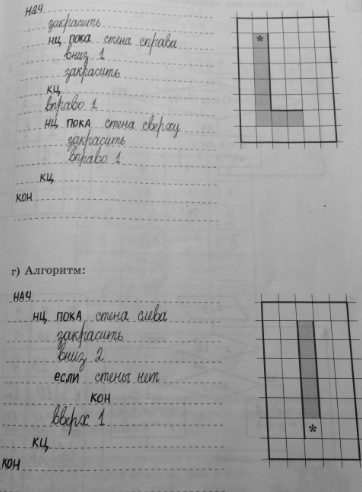 нач
закрасить
нц пока стена справа
вниз 1
закрасить
кц
вправо 1
нц пока стена сверху
закрасить
вправо 1
кц
кон
*
г) Алгоритм:
нач
нц пока стена слева
закрасить
вниз 2
если стены нет
кон
вверх 1
кц
кон
*